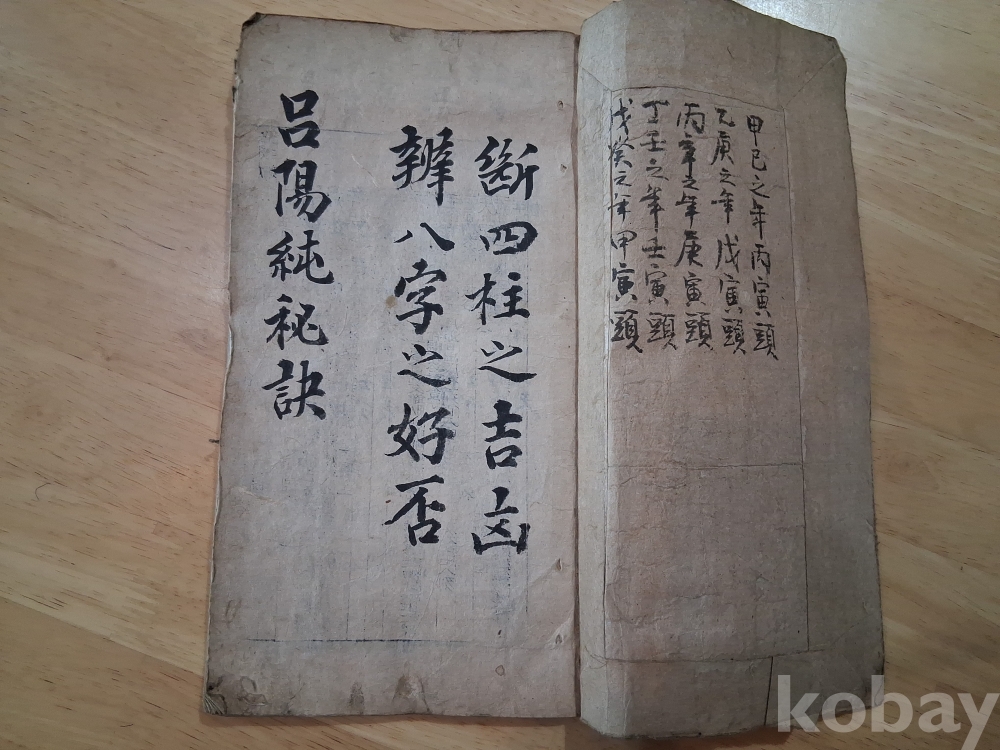 甲己之年丙寅頭
乙庚之年戊寅頭
丙辛之年庚寅頭
丁壬之年壬寅頭
戊癸之年甲寅頭
斷四柱之吉凶
辨八字之好否
呂陽純祕訣
kobay